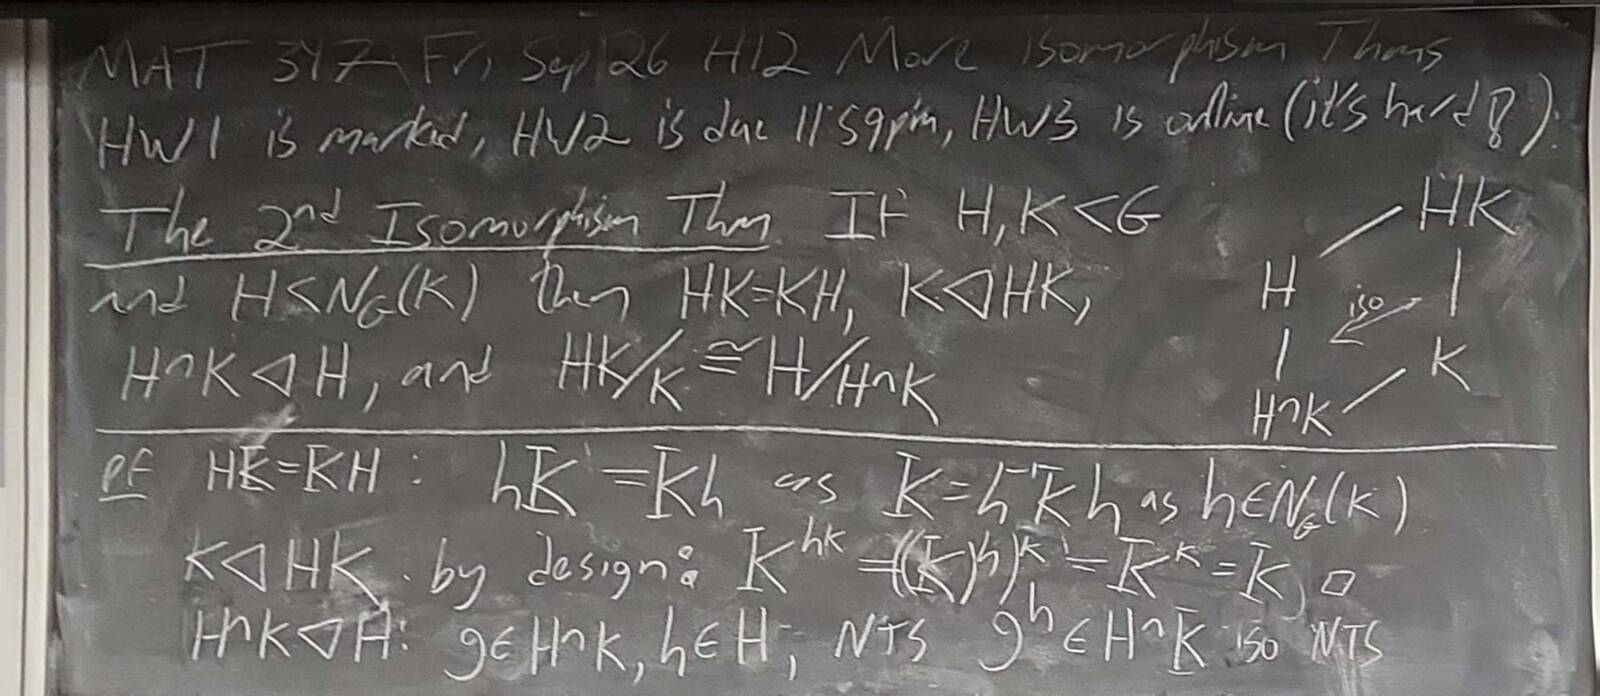 MAT 347 Fri Sep 26 H12 More isomorphism Thms
HW1 is marked, HW2 is due 11:59pm, HW3 is online (it's hard!).
The 2nd Isomorphism Thm If H, K < G
and H < N_G(K) then HK=KH, K ◁ HK,
H∩K ◁ H, and HK/K ≅ H/H∩K
HK
H
iso
K
H∩K
pf HK=KH: hK=Kh as K=h⁻¹Kh as h∈N_G(K)
K ◁ HK by design: K^{hk} = ((K)^h)^k = K^k = K, □
H∩K ◁ H: g∈H∩K, h∈H, NTS g^h ∈ H∩K iso NTS